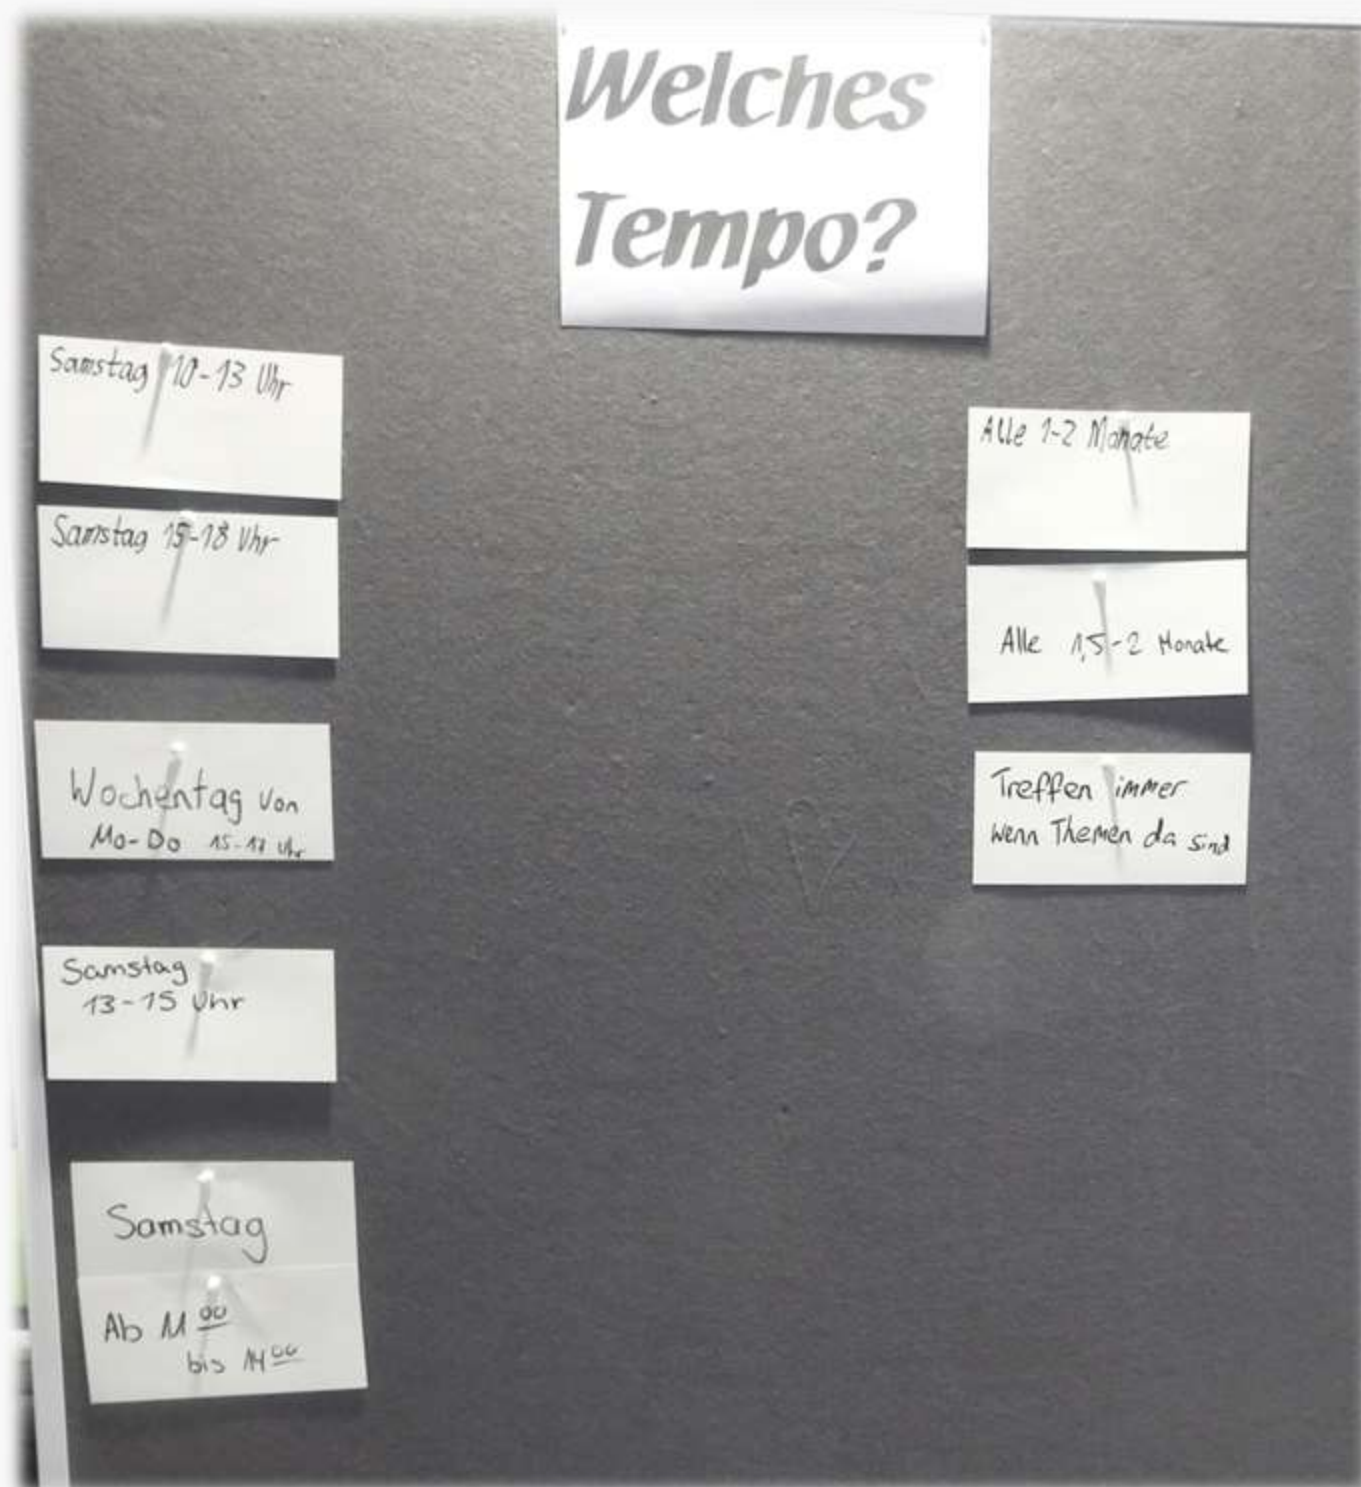 Welches
Tempo?
Samstag 10-13 Uhr
Samstag 15-18 Uhr
Wochentag von
Mo-Do 15-17 Uhr
Samstag
13-15 Uhr
Samstag
Ab 11 00
bis 14 00
Alle 1-2 Monate
Alle 1,5-2 Monate
Treffen immer
wenn Themen da sind